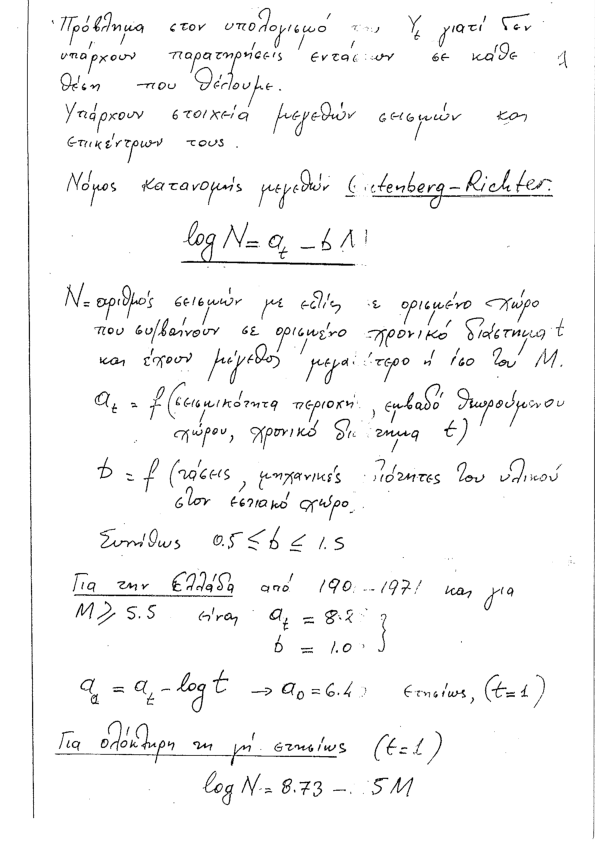 Πρόβλημα στον υπολογισμό Y_t γιατί δεν
υπάρχουν παρατηρήσεις εντάσεων σε κάθε
θέση που θέλουμε.
1
Υπάρχουν στοιχεία μεγεθών σεισμών και
επικέντρων τους.
Νόμος κατανομής μεγεθών Gutenberg-Richter.
log N = a_t - b M
N = αριθμός σεισμών με ορισμένο χώρο
που συμβαίνουν σε ορισμένο χρονικό διάστημα t
και έχουν μέγεθος μεγαλύτερο ή ίσο του M.
a_t = f (σεισμικότητα περιοχή, εμβαδό θεωρούμενου
χώρου, χρονικό διάστημα t)
b = f (τάσεις, μηχανικές ιδιότητες του υλικού
στον εστιακό χώρο.
Συνήθως 0.5 ≤ b ≤ 1.5
Για την Ελλάδα από 190 -1971 και για
M ≥ 5.5 είναι a_t = 8.2 }
b = 1.0
= a_t - log t → a_0 = 6.4 ετησίως, (t=1)
Για ολόκληρη τη γή ετησίως (t=1)
log N = 8.73 - 5M